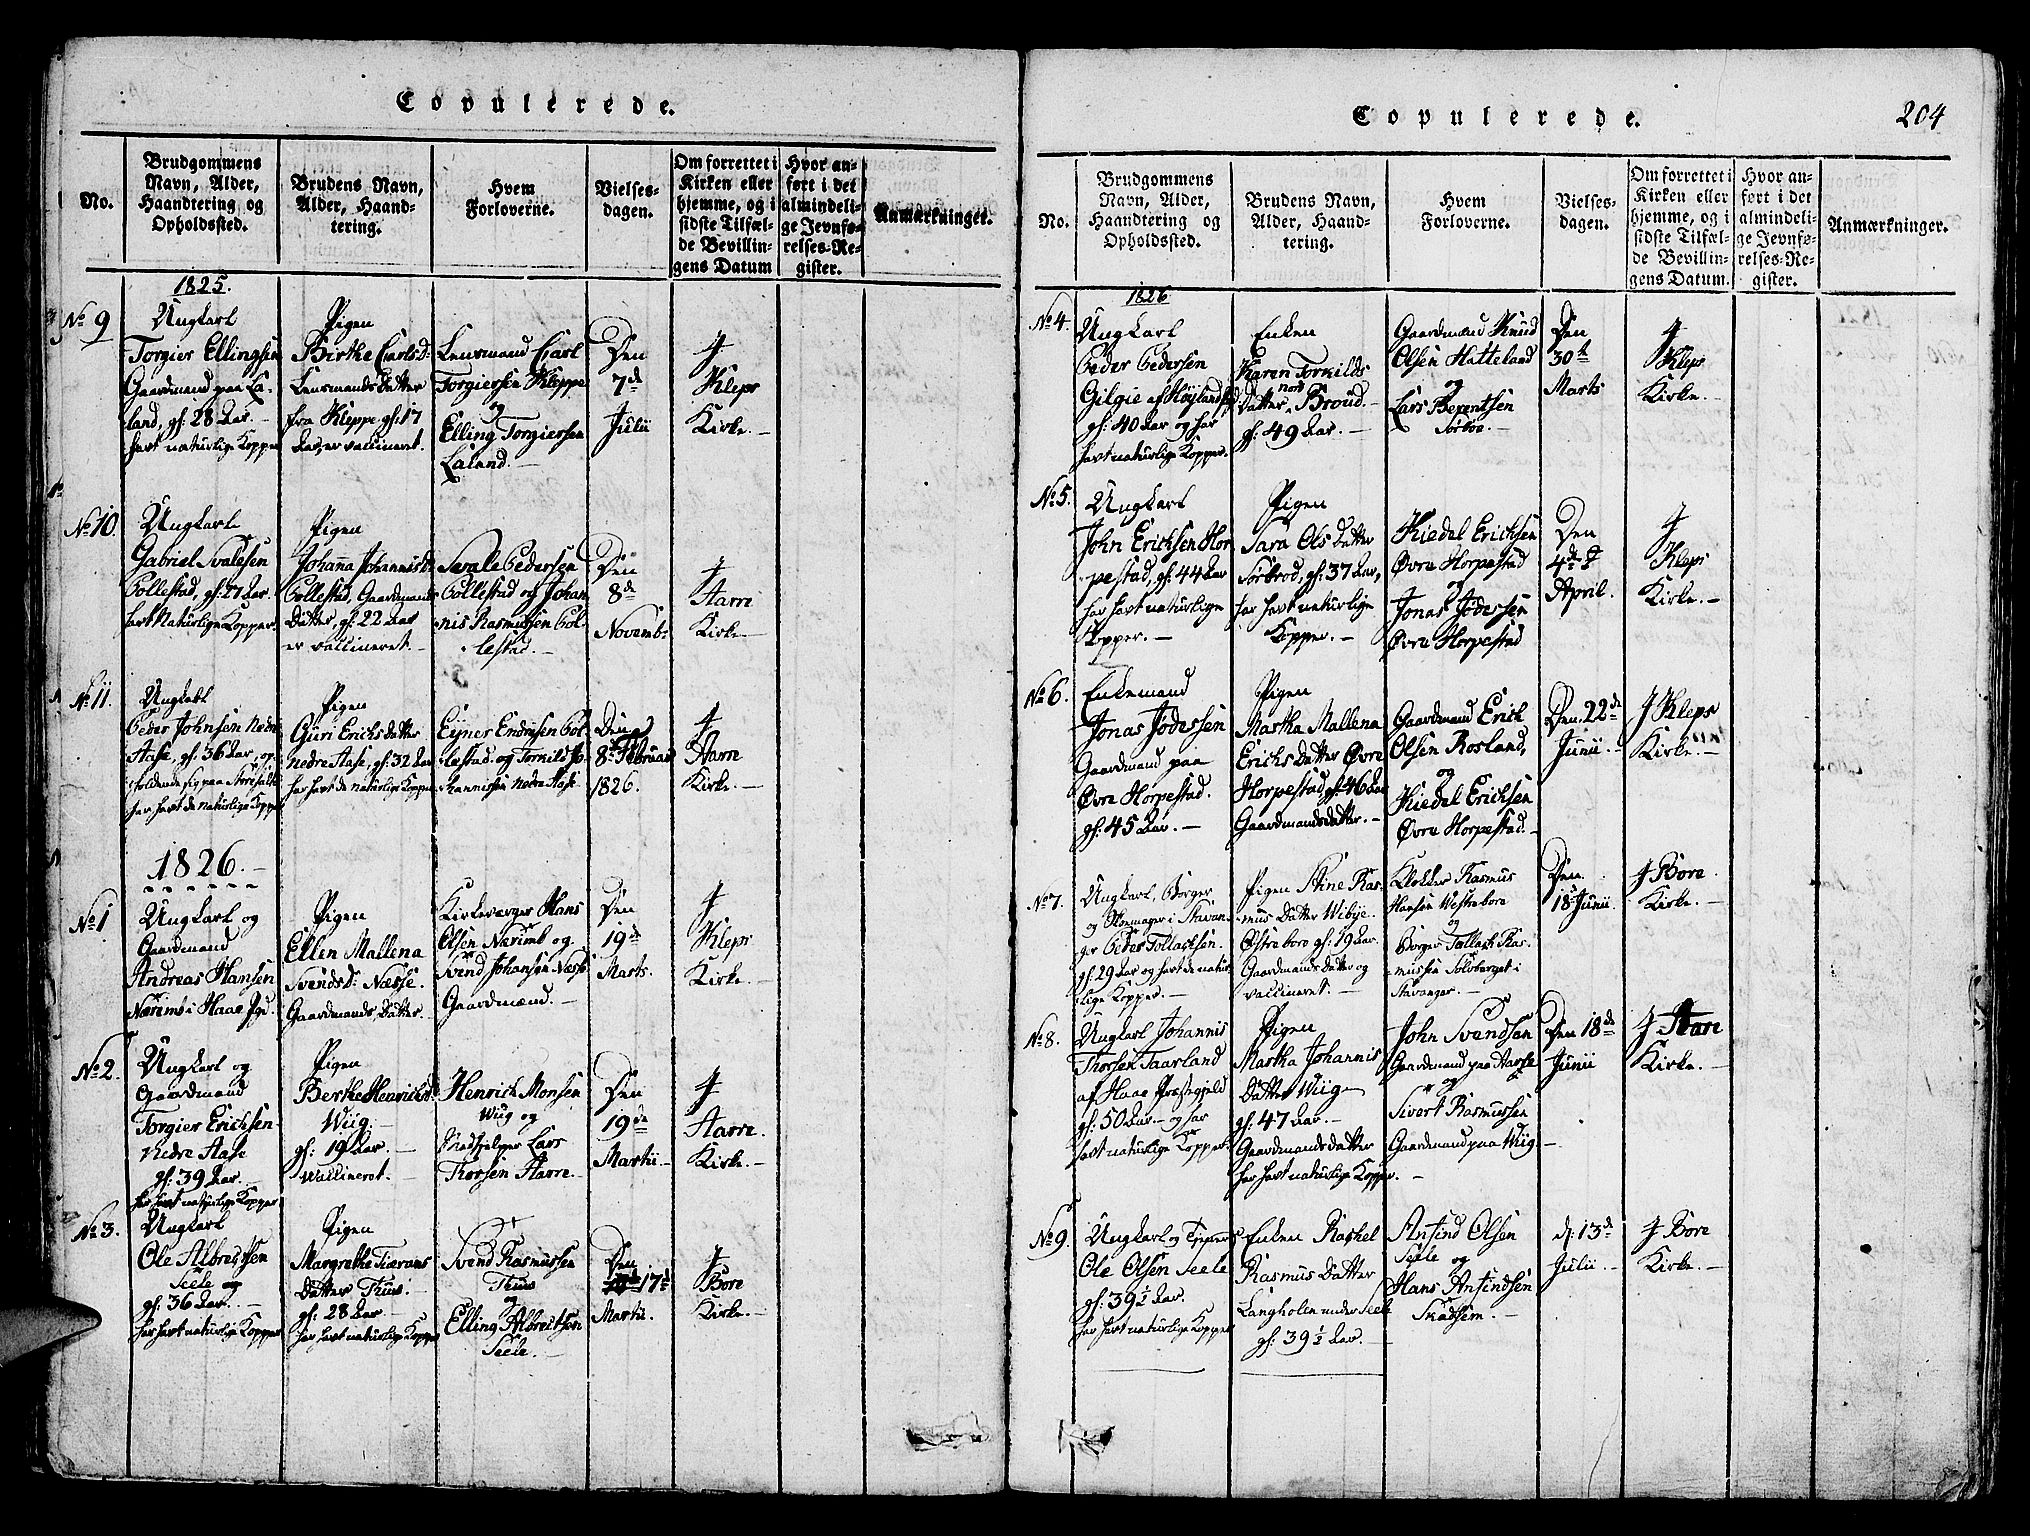 Copulerede.
No.
Brudgommens
Navn, Alder,
Haandtering og
Opholdssted.
Brudens Navn,
Alder, Haand-
tering.
Hvem
Forloverne.
Vielses-
dagen.
Om forrettet i
Kirken eller
hjemme, og i
sidste Tilfæl-
de Bevillin-
gens Datum
Hvor an-
ført i det
almindeli-
ge Jevnfø-
relses-Re-
gister.
Anmærkninger.
1825.
No 9
Ungkarl
Torgier Ellingsen
Gaardmand paa La-
land, gl: 28 Aar. —
havt naturlige Kopper
Pigen
Birthe Carlsd:
Lensmands Datter
fra Kleppe gl: 17
Aar, er vaccineret.
Lensmand Carl
Torgiersen Kleppe
og
Elling Torgiersen
Laland. —
Den
7de
Julii
I
Kleps
Kirke. —
No 10.
Ungkarl
Gabriel Svalesen
Pollestad, gl: 27 Aar.
havt Naturlige Kopper.
Pigen
Johanna Johannisd:
Pollestad, Gaardmands
Datter, gl: 22 Aar
er vaccineret. —
Svale Pedersen
Pollestad og Johan
nis Rasmussen Pol-
lestad. —
Den
8de
Novemb:
I
Harre
Kirke —
No 11.
Ungkarl
Peder Johnsen Nedre
Aase, gl: 36 Aar, og
har havt de naturlige Kopper
Pigen
Guri Erichsdatter
nedre Aase, gl: 32 Aar
har havt de naturlige Kopper
Ejner Endresen Pol-
lestad og Torkild Jo-
hannissen nedre Aase.
Den
8de Februar
1826.
I
Harre
Kirke. —
1826. —
No 1
Ungkarl og
Gaardmand
Andreas Hansen
Nærem i Haae Pgd.
Pigen
Ellen Mallena
Svendsd: Næsse.
Gaardmands Datter.
Kirkeværger Hans
Olsen Nærem og
Svend Johansen Næss
Gaardmænd. —
Den
19de
Marts.
I
Kleps
Kirke. —
No 2.
Ungkarl og
Gaardmand
Torgier Erichsen
nedre Aase
gl: 39 Aar. —
har havt naturlige Kopper
Pigen
Berthe Henrichsd:
Wiig. —
gl: 19 Aar. —
Vaccineret. —
Henrich Monsen
Wiig og
Medhjelper Lars
Thorsen Harre —
Den
19de
Martii —
I
Harre.
Kirke. —
No 3.
Ungkarl
Ole Albretsen
Seele og
gl: 36 Aar. —
har havt naturlige Kopper
Pigen
Margrethe Tiærans
Datter Thuu.
gl: 28 Aar —
har havt naturlige Kopper
Svend Rasmussen
Thuu
og
Elling Albretsen
Seele. —
Den
17de
Martii.
I
Bore
Kirke. —
Copulerede.
204
No.
Brudgommens
Navn, Alder,
Haandtering og
Opholdssted.
Brudens Navn,
Alder, Haand-
tering.
Hvem
Forloverne.
Vielses-
dagen.
Om forrettet i
Kirken eller
hjemme, og i
sidste Tilfæl-
de Bevillin-
gens Datum.
Hvor an-
ført i det
almindeli-
ge Jevnfø-
relses-Re-
gister.
Anmærkninger.
1826
No 4.
Ungkarl
Peder Pedersen
Gilgie af Høylands
gl: 40 Aar og har
havt naturlige Kopper.
Enken
Karen Torkilds
Datter, nord Broud. —
gl: 49 Aar. —
Gaardmand Knud
Olsen Hatteland
og
Lars Berentsen
Sørboe. —
Den
30te
Marts
I
Kleps
Kirke. —
No 5.
Ungkarl
John Erichsen Hor
pestad, gl: 44 Aar
har havt naturlige
Kopper. —
Pigen
Sara Ols Datter
Sørbrod, gl: 37 Aar,
har havt naturlige
Kopper. —
Kiedel Erichsen
Øvre Horpestad
og
Jonas Jødessen
Øvre Horpestad
Den
4de
April.
I
Kleps
Kirke. —
No 6.
Enkemand
Jonas Jødessen
Gaardmand paa
Øvre Horpestad.
gl: 45 Aar. —
Pigen
Martha Mallena
Erichs Datter Øvre
Horpestad gl: 46 Aar
Gaardmandsdatter. —
Gaardmand Erick
Olsen Rosland,
og
Kiedel Erichsen
Øvre Horpestad. —
Den 22de
Junii. —
I Kleps
Kirke. —
No 7.
Ungkarl, Borger
og Skomager i Stavan-
ger Peder Tollachsen.
gl: 29 Aar og havt de natur
lige Kopper. —
Pigen Stine Ras-
mus Datter Wibye.
Østrebore gl: 19 Aar.
Gaardmands Datter og
vaccineret. —
Klokker Rasmus
Hansen Vestrebore
og
Borger Tollach Ras-
mussen Solsberget i
Stavanger. —
Den.
18de Junii.
I Bore.
Kirke. —
No 8.
Ungkarl Johannis
Thorsen Taarland
af Haae Præstegield
gl: 50 Aar. — og har
havt naturlige Kopper.
Pigen
Martha Johannis
Datter Wiig —
gl: 47 Aar. —
Gaardmandsdatter
har havt naturlige Kopper. —
John Svendsen
Gaardmand paa Harre
og
Sivert Rasmussen
Gaardmand paa Wiig —
Den 18de
Junii
I Harre
Kirke. —
No 9.
Ungkarl og
Ole Olsen Seele
gl: 39 ½ Aar.
har havt naturlige Kopper
Enken Rachel
Rasmus Datter
Langholen under Seele
gl: 39 ½ Aar. —
Ansind Olsen
Seele og
Hans Ansindsen
Skadsem. —
d: 13de
Julii. —
I Bore
Kirke. —